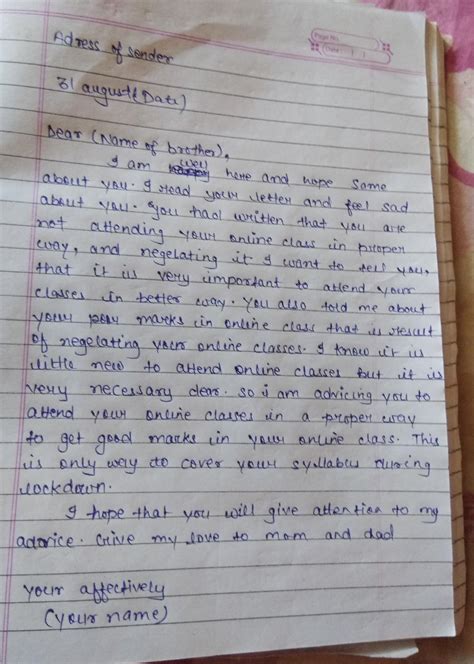 Page No.
Date
Adress of sender
31 august (Date)
Dear (Name of brother),
I am well here and hope same
about you. I read your letter and feel sad
about you. You had written that you are
not attending your online class in proper
way, and negelating it I want to tell you,
that it is very important to attend your
classes in better way. You also told me about
your poor marks in online class that is result
of negelating your online classes. I know it is
little new to attend online classes but it is
very necessary dear. so i am advicing you to
attend your online classes in a proper way
to get good marks in your online class. This
is only way to cover your syllabus during
lockdown.
I hope that you will give attention to my
advice. Give my love to mom and dad
your affectively
(your name)